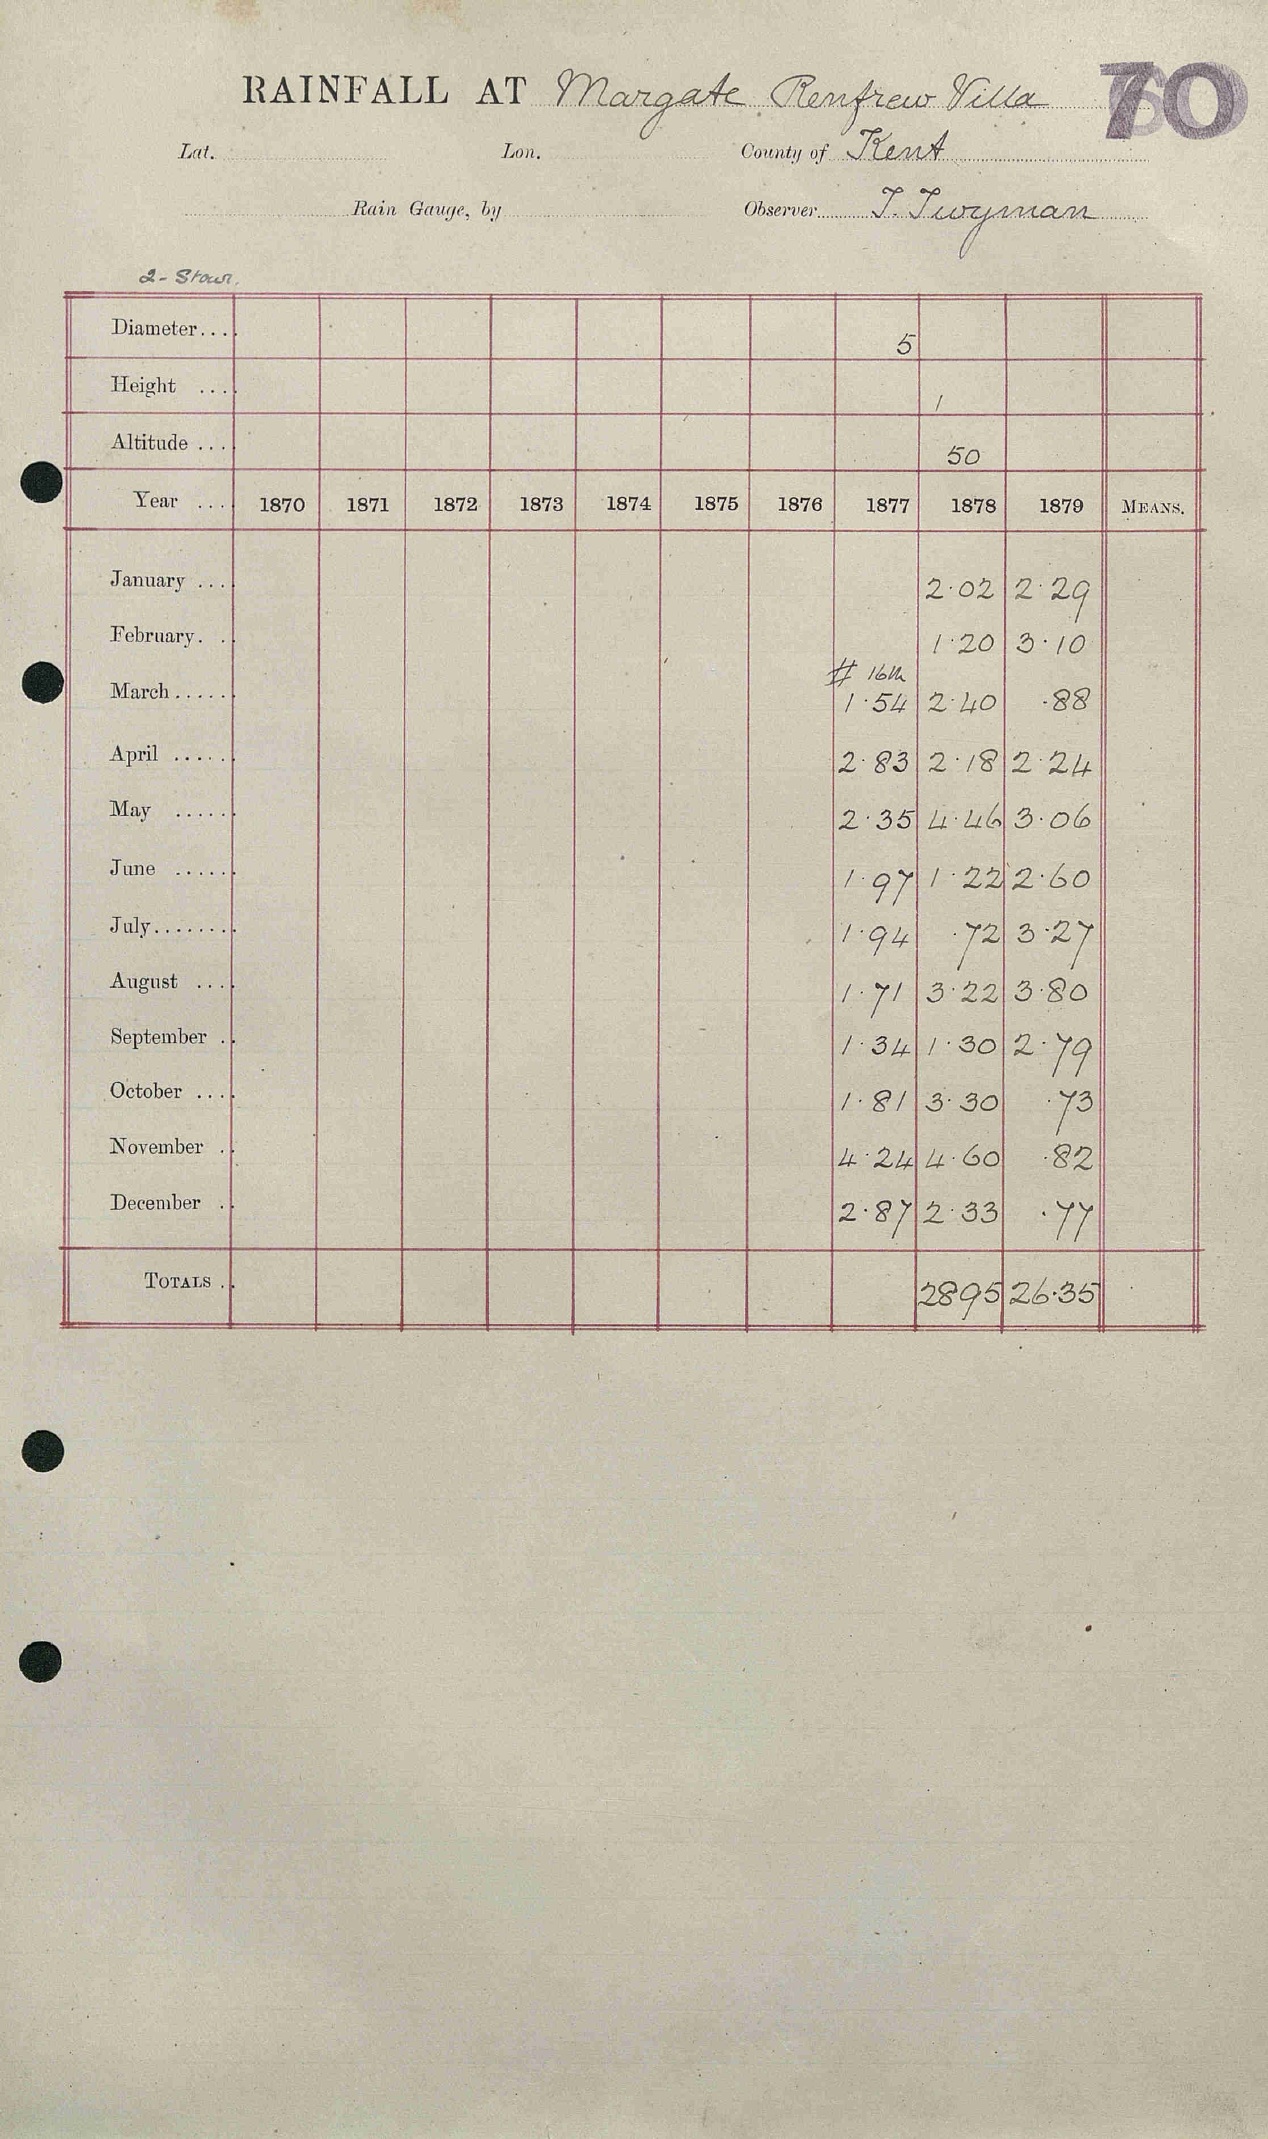 RAINFALL AT Margate Renfrew Villa 70
Lat. Lon. County of Kent
Rain Gauge, by Observer T. Twyman
2 - Stour.
Diameter.... 5
Height .... 1
Altitude ... 50
Year ... 1870 1871 1872 1873 1874 1875 1876 1877 1878 1879 MEANS.
January ... 2·02 2·29
February. .. 1·20 3·10
# 16th
March...... 1·54 2·40 ·88
April ..... 2·83 2·18 2·24
May ..... 2·35 4·46 3·06
June ..... 1·97 1·22 2·60
July........ 1·94 ·72 3·27
August .... 1·71 3·22 3·80
September .. 1·34 1·30 2·79
October .... 1·81 3·30 ·73
November .. 4·24 4·60 ·82
December .. 2·87 2·33 ·77
TOTALS .. 2895 26·35